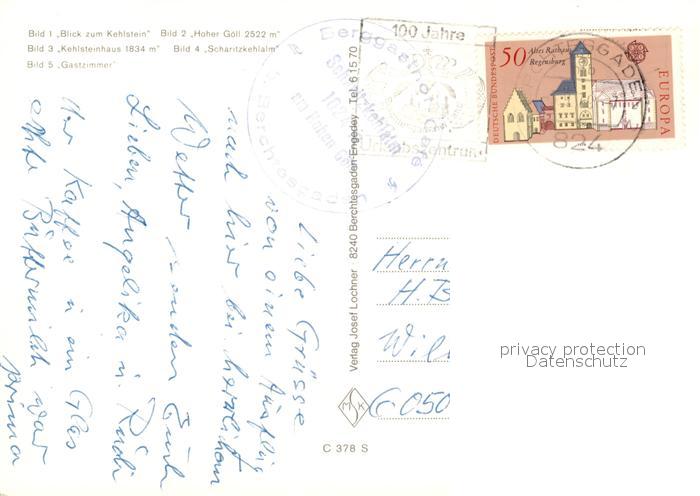 Bild 1 „Blick zum Kehlstein" Bild 2 „Hoher Göll 2522 m"
Bild 3 „Kehlsteinhaus 1834 m" Bild 4 „Scharitzkehlalm"
Bild 5 „Gastzimmer"
Liebe Grüsse
von einem Ausflug
nach hier bei herrlichem
Wetter senden Euch
Lieben, Angelika u. Rudi
Der Kaffee u ein Glas
echte Buttermilch war
prima
Berggasthof
Berchtesgaden
100 Jahre
50 Altes Rathaus
Regensburg
DEUTSCHE BUNDESPOST
EUROPA
824
Verlag Josef Lochner · 8240 Berchtesgaden-Engedey · Tel. 6 15 70
Herrn
H. B
MSK
C 378 S
privacy protection
Datenschutz